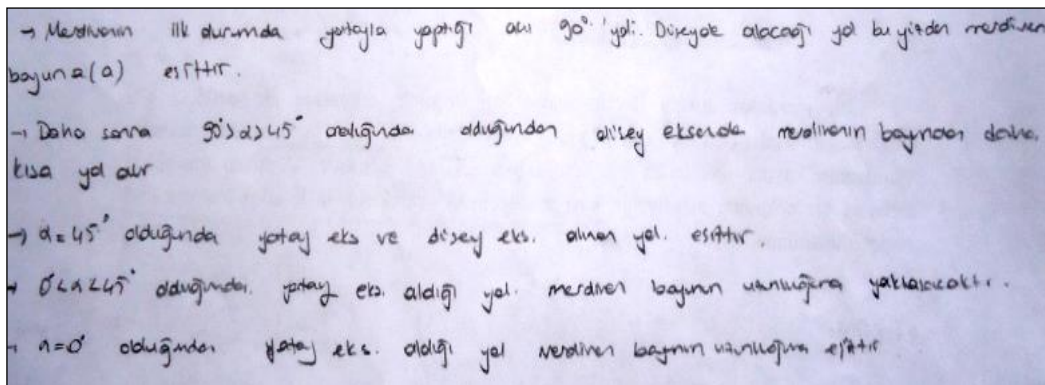 → Merdivenin ilk durumda yatayla yaptığı açı 90° 'ydi. Düşeyde alacağı yol bu yüzden merdiven
boyuna (a) eşittir.
→ Daha sonra 90°>α>45° aralığında olduğundan düşey eksende merdivenin boyundan daha
kısa yol alır
→ α=45° olduğunda yatay eks ve düşey eks. alınan yol. eşittir.
→ 0°<α<45° olduğunda. yatay eks. aldığı yol. merdiven boyunun uzunluğuna yaklaşacaktır.
→ α=0° olduğundan yatay eks. aldığı yol merdiven boyunun uzunluğuna eşittir